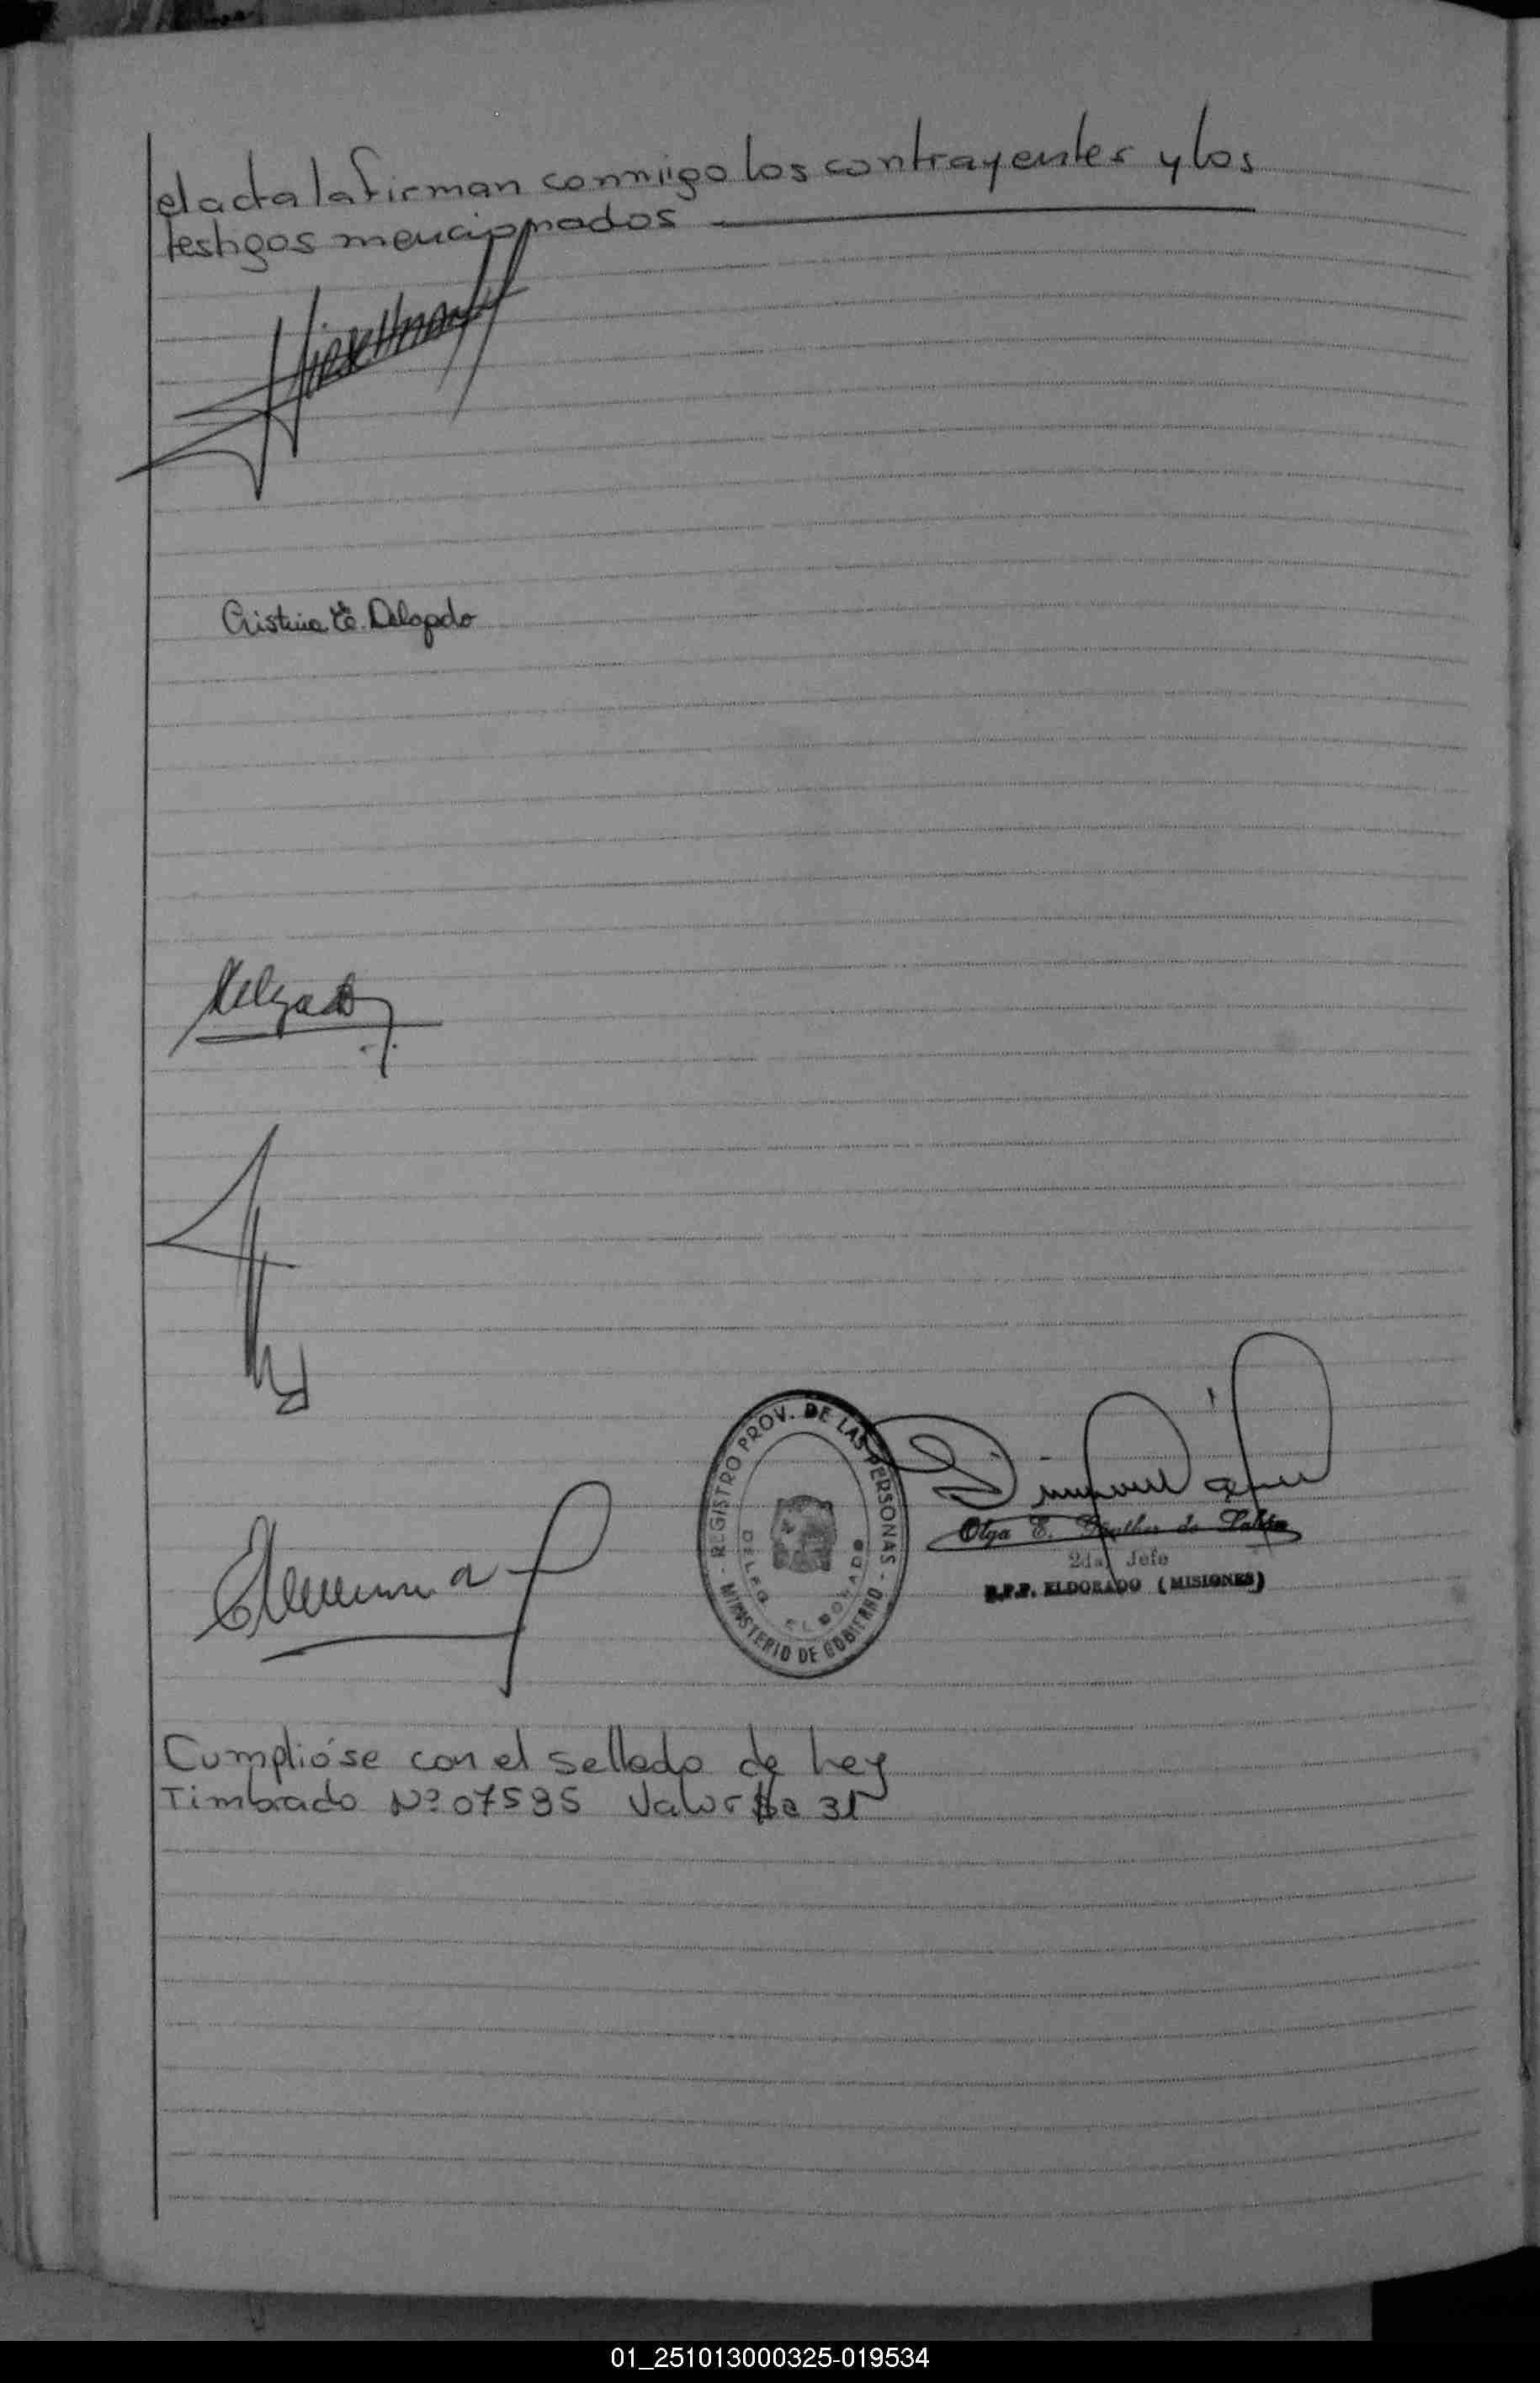 el acta la firman conmigo los contrayentes y los
testigos mencionados
Cristina E. Delgado
Delgado
REGISTRO PROV. DE LAS PERSONAS - MINISTERIO DE GOBIERNO -
DELEG. ELDORADO
Olga E. de
2da Jefe
R.P.P. ELDORADO (MISIONES)
Cumplióse con el sellado de Ley
Timbrado Nº 07595 Valor $a 31
01_251013000325-019534